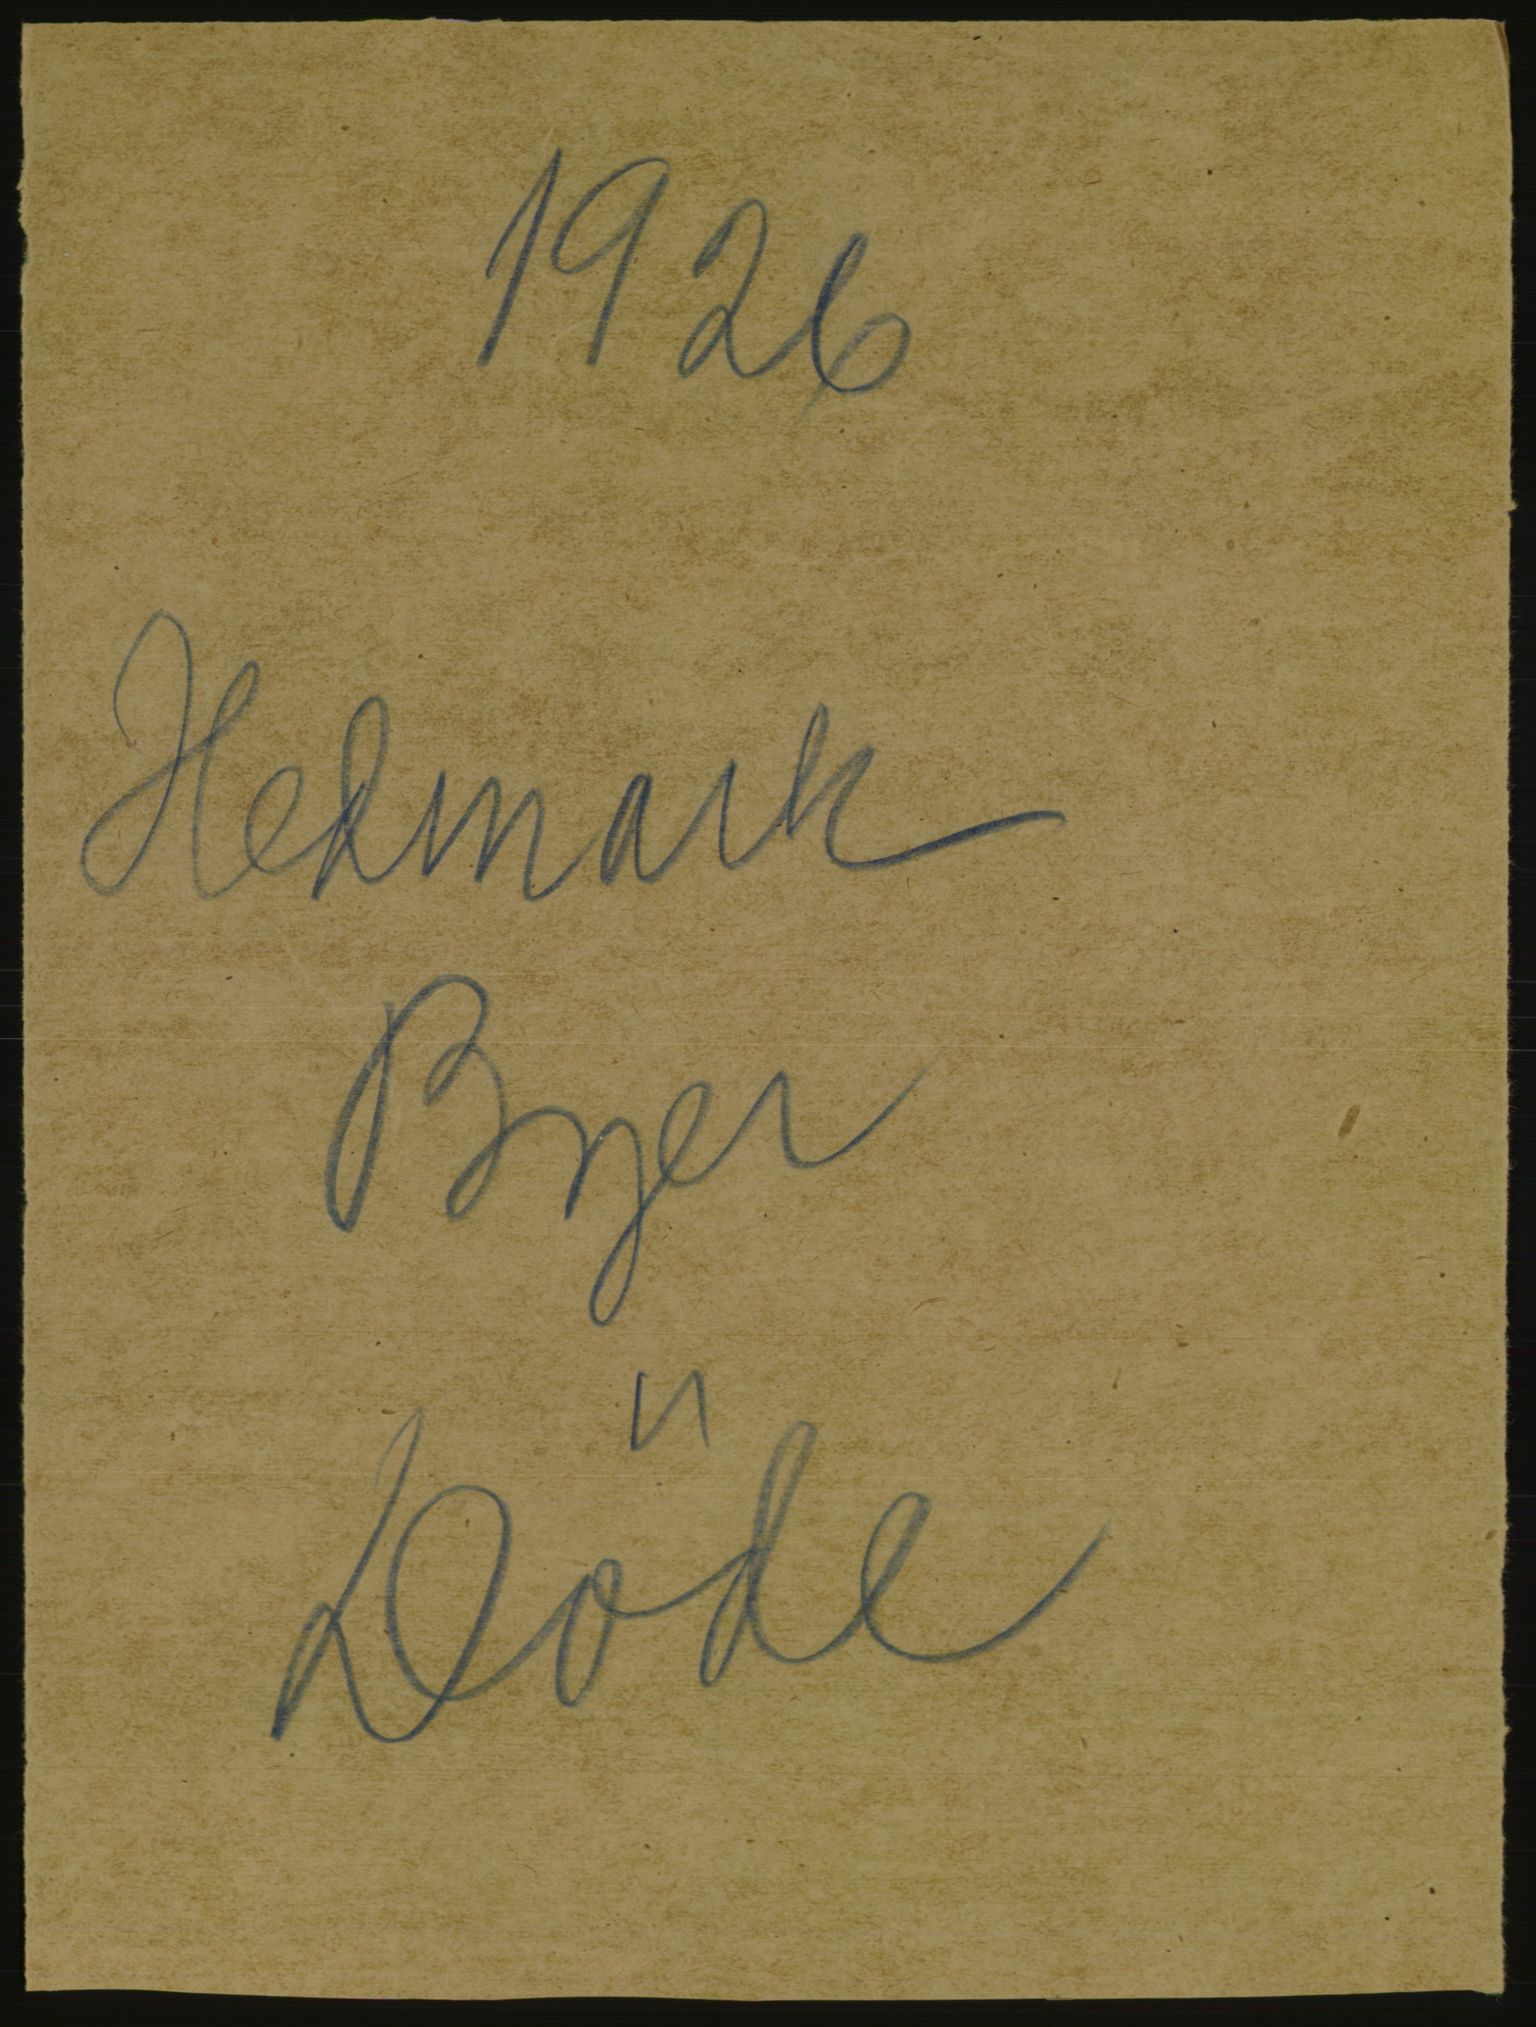 1926
Hedmark
Byer
Döde